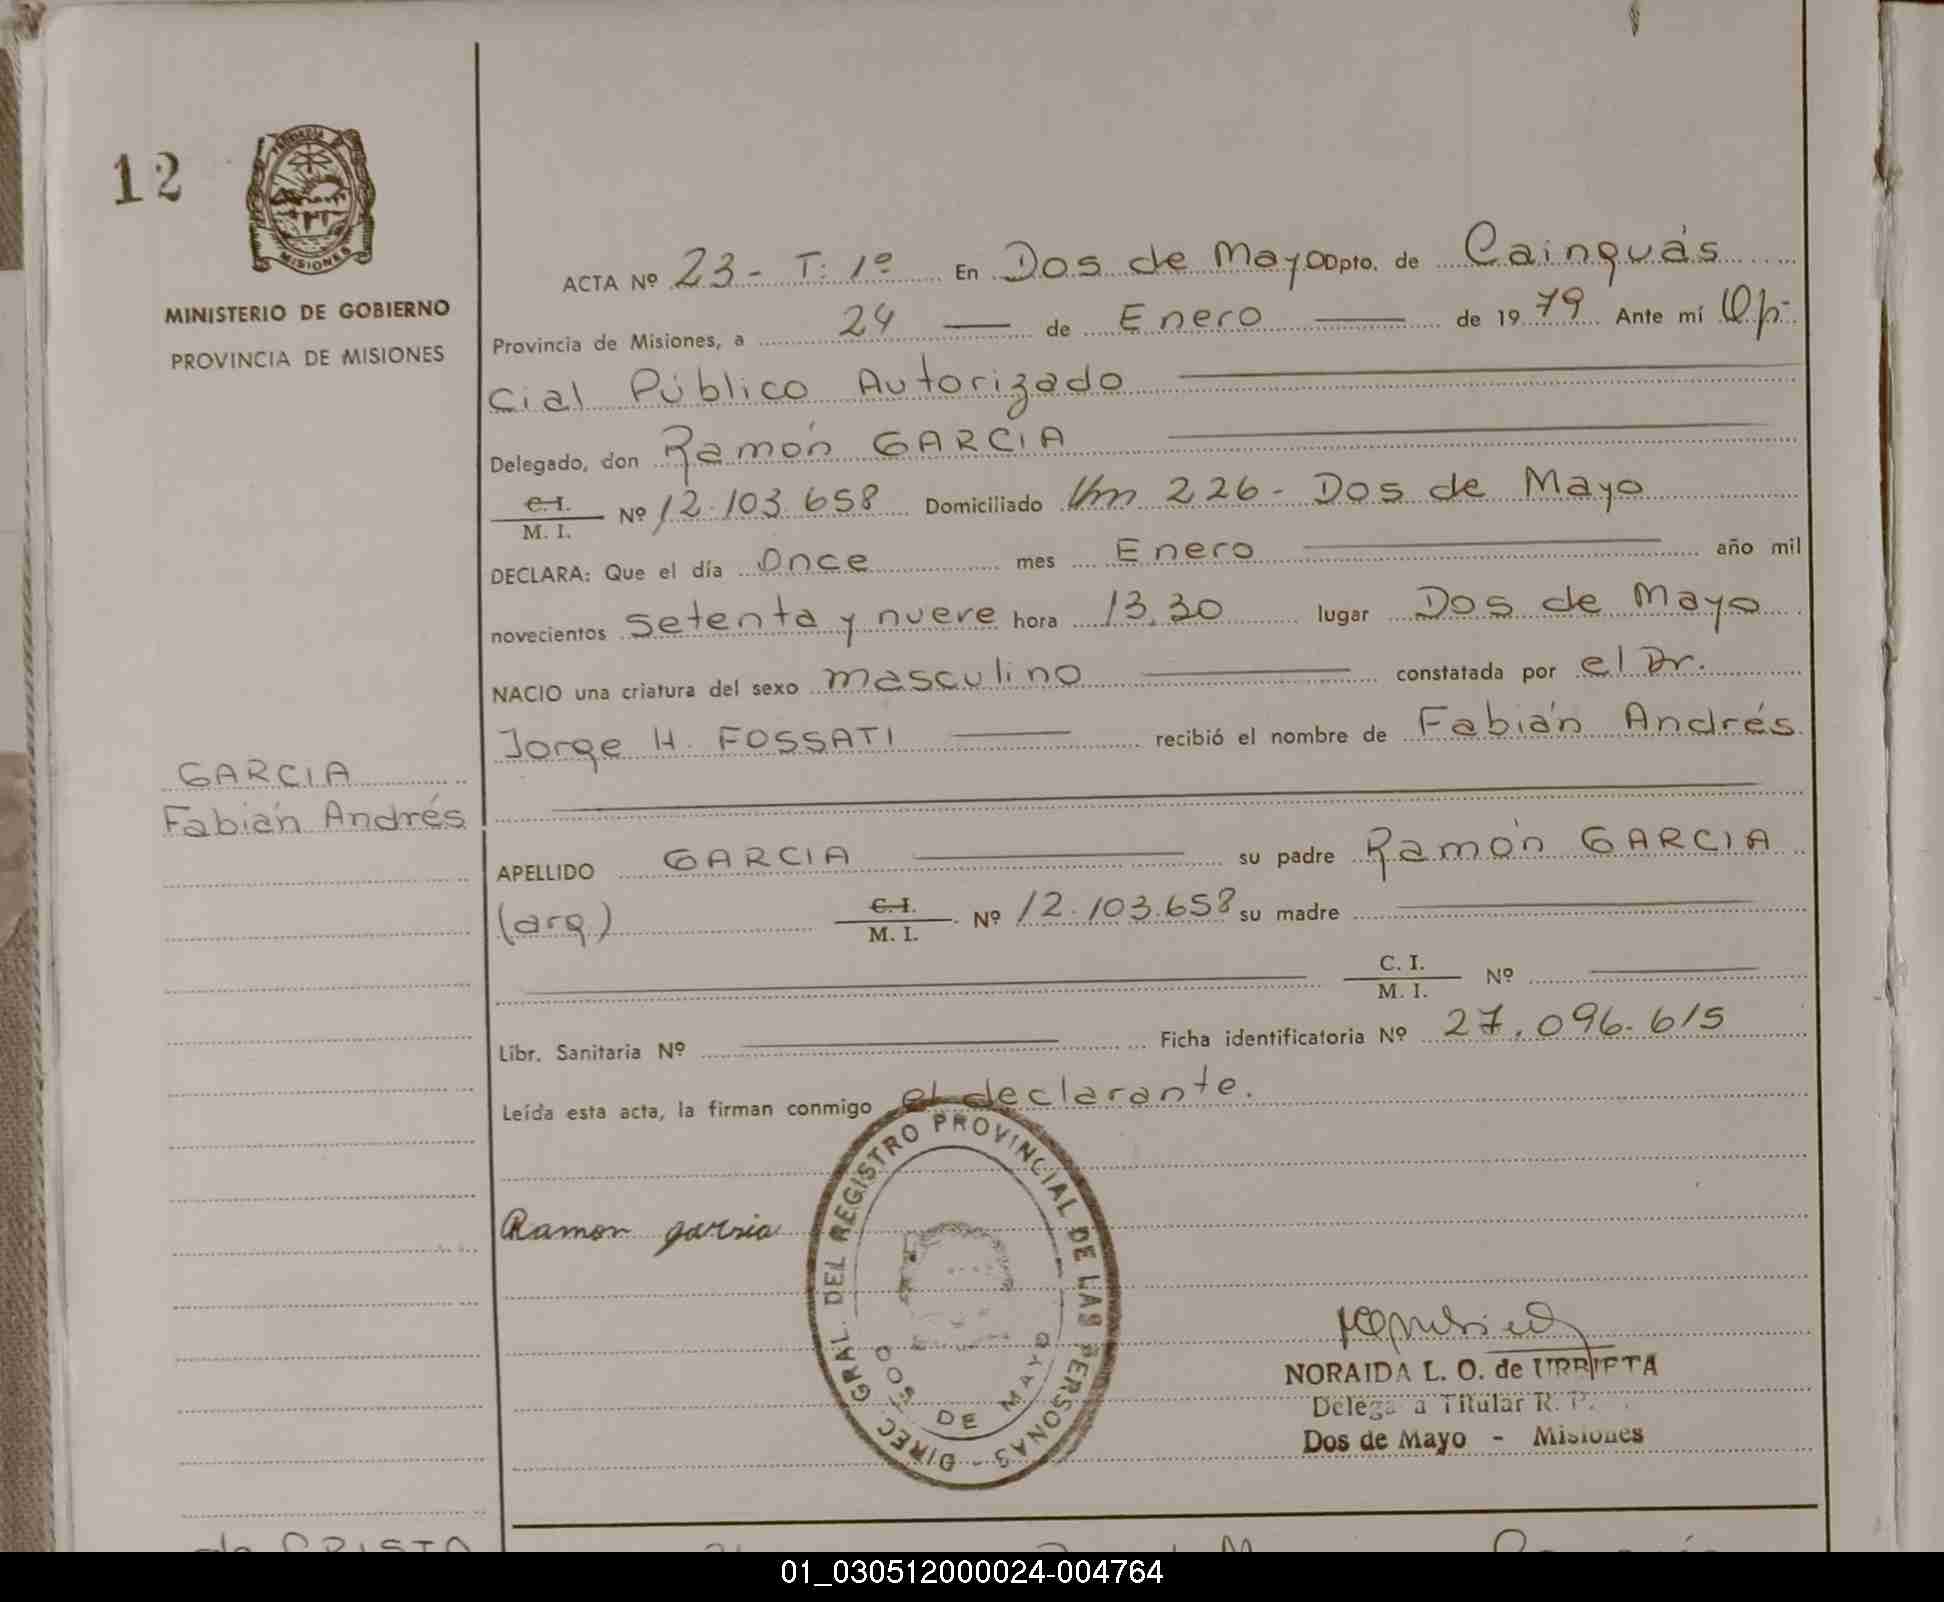 12
PROVINCIA DE
MISIONES
MINISTERIO DE GOBIERNO
PROVINCIA DE MISIONES
GARCIA
Fabián Andrés
ACTA Nº 23 - T: 1º En Dos de Mayo Dpto. de Cainguás
Provincia de Misiones, a 24 — de Enero — de 1979 Ante mí Ofi-
cial Público Autorizado
Delegado, don Ramón GARCIA
C. I. / M. I. Nº 12.103.658 Domiciliado Km 226 - Dos de Mayo
DECLARA: Que el día Once mes Enero año mil
novecientos setenta y nueve hora 13.30 lugar Dos de Mayo
NACIO una criatura del sexo masculino constatada por el Dr.
Jorge H. FOSSATI recibió el nombre de Fabián Andrés
APELLIDO GARCIA su padre Ramón GARCIA
(arg) C. I. / M. I. Nº 12.103.658 su madre
C. I. / M. I. Nº
Libr. Sanitaria Nº Ficha identificatoria Nº 27.096.615
Leída esta acta, la firman conmigo el declarante.
Ramon garsia
DIREC. GRAL. DEL REGISTRO PROVINCIAL DE LAS PERSONAS -
DOS DE MAYO
NORAIDA L. O. de URRIETA
Delegada Titular R. P.
Dos de Mayo - Misiones
01_030512000024-004764